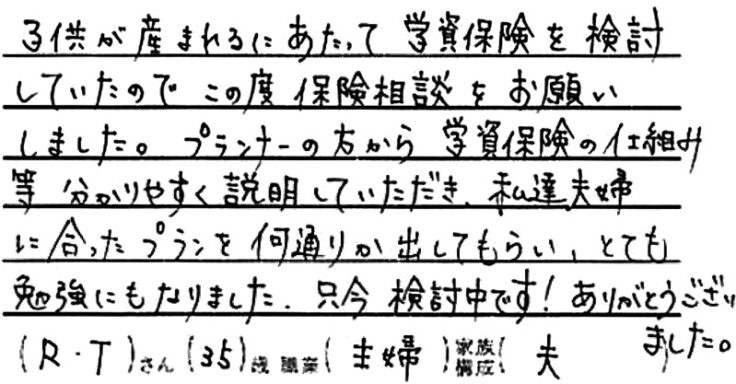 子供が産まれるにあたって 学資保険を検討
していたので この度 保険相談をお願い
しました。 プランナーの方から 学資保険の仕組み
等 分かりやすく説明していただき、私達夫婦
に合ったプランを何通りか出してもらい、とても
勉強にもなりました。只今 検討中です! ありがとうござい
ました。
(R・T)さん (35)歳 職業(主婦)家族構成(夫